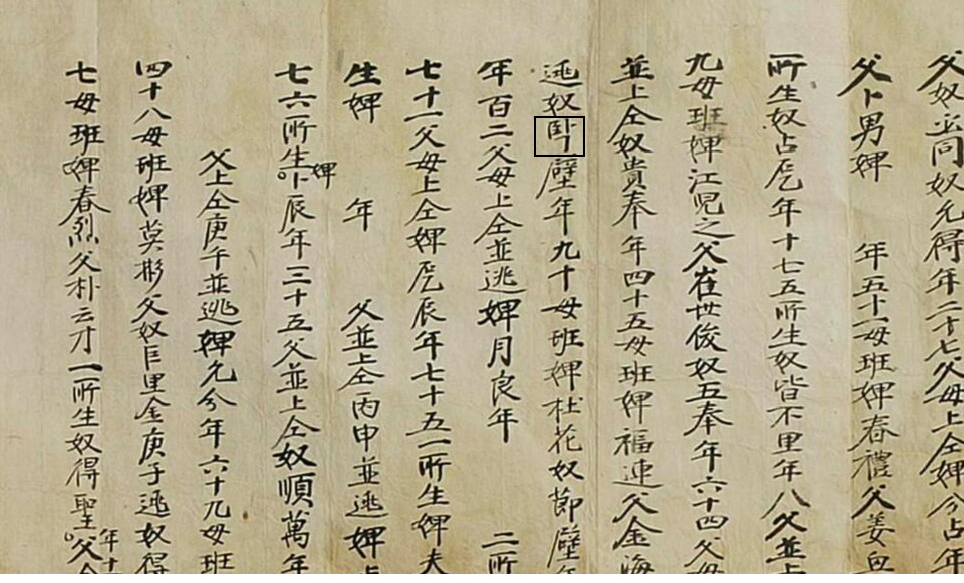 父奴丞同奴允得年二十七父母上仝婢分占年
父卜男婢 年五十一母班婢春禮父姜
所生奴占厑年十七五所生奴皆不里年八父並上
九母班婢江児之父崔世俊奴五奉年六十四父母
並上仝奴貴奉年四十五母班婢福連父金海
逃奴卧壁年九十母班婢杜花奴節壁年
年百二父母上仝並逃婢月良年 二所
七十一父母上仝婢厑辰年七十五一所生婢夫
生婢 年 父並上仝丙申並逃婢占
七六所生婢卟辰年三十五父並上仝奴順萬年
父上仝庚午並逃婢允分年六十九母班
四十八母班婢莫彬父奴巨里金庚子逃奴得
七母班婢春烈父朴云才一所生奴得聖父仝
年十